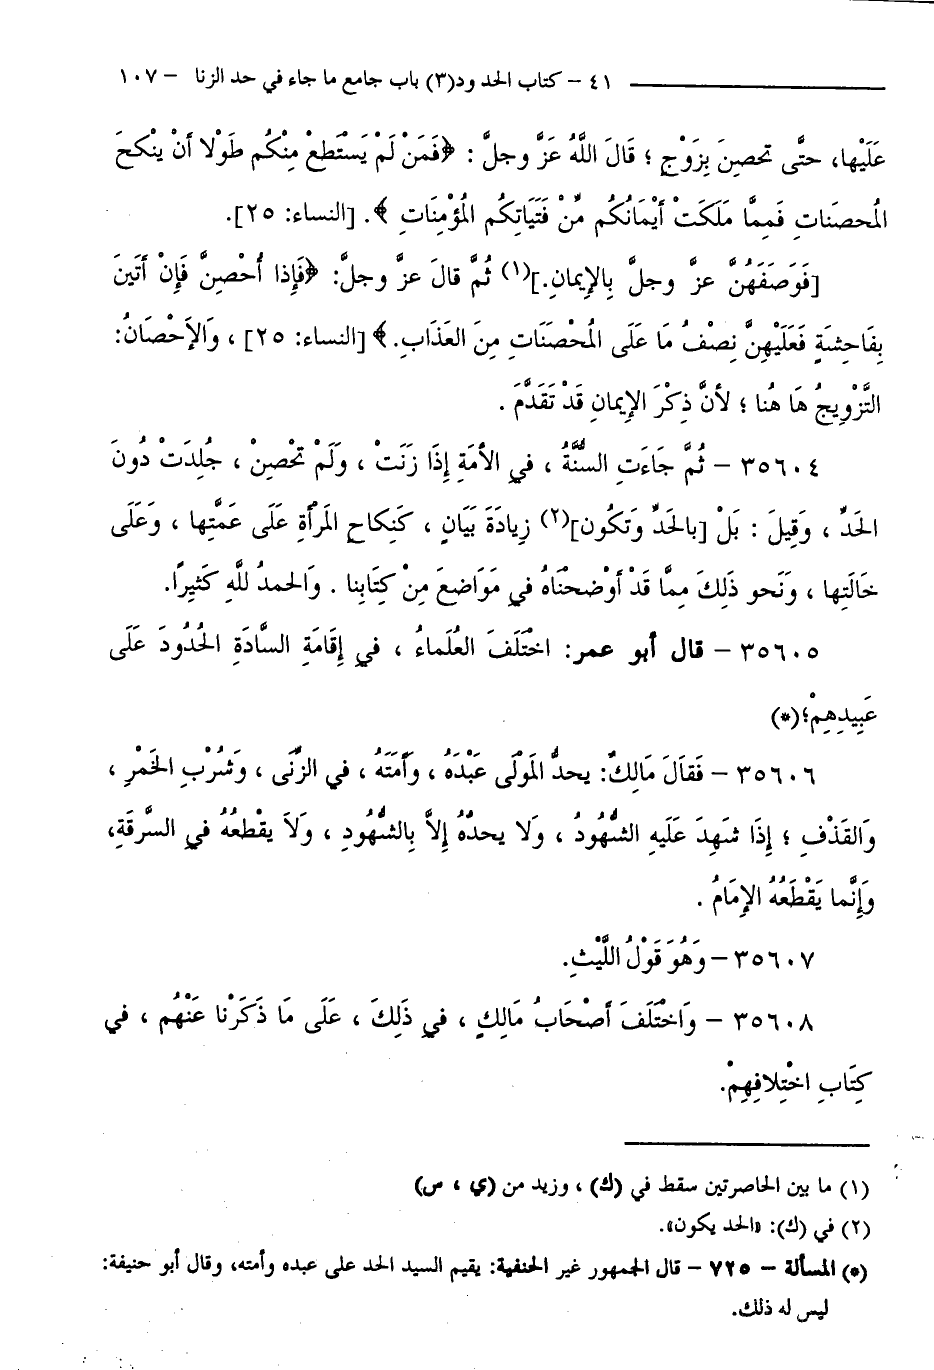 ٤١ – كتاب الحدود(٣) باب جامع ما جاء في حد الزنا – ١٠٧
عَلَيْها، حتَّى تحصِنَ بِزَوْجٍ ؛ قَالَ اللَّهُ عَزَّ وجلَّ : ﴿فَمَنْ لَمْ يَسْتَطعْ مِنْكُم طَوْلا أَنْ يَنْكحَ
المُحصَنَاتِ فَمِمَّا مَلَكَتْ أَيْمَانُكُم مِّنْ فَتَيَاتِكُم المُؤْمِنَاتِ ﴾. [النساء: ٢٥].
[فَوَصَفَهُنَّ عزَّ وجلَّ بِالإِيمانِ.](١) ثُمَّ قالَ عزَّ وجلَّ: ﴿فَإِذا أُحْصِنَّ فَإِنْ أَتَينَ
بِفَاحِشَةٍ فَعَلَيْهِنَّ نِصْفُ مَا عَلَى المُحْصَنَاتِ مِنَ العَذَابِ.﴾ [النساء: ٢٥] ، وَالإِحْصَانُ:
التَّزْوِيجُ هَا هُنا ؛ لأَنَّ ذِكْرَ الإِيمانِ قَدْ تَقَدَّمَ .
٣٥٦٠٤ – ثُمَّ جَاءَتِ السُّنَّةُ ، في الأَمَةِ إِذَا زَنَتْ ، وَلَمْ تحْصِنْ ، جُلِدَتْ دُونَ
الحَدِّ ، وَقِيلَ : بَلْ [بالحَدِّ وَتكُون](٢) زِيادَةَ بَيَانٍ ، كَنِكاحِ المَرْأَةِ عَلَى عَمَّتِها ، وَعَلَى
خَالَتِها ، وَنَحو ذَلِكَ مِمَّا قَدْ أَوْضحْنَاهُ في مَوَاضعَ مِنْ كِتَابِنا . وَالحمدُ للَّهِ كَثِيرًا.
٣٥٦٠٥ – قال أبو عمر: اخْتَلَفَ العُلَماءُ ، في إِقَامَةِ السَّادَةِ الحُدُودَ عَلَى
عَبِيدِهِمْ؛(*)
٣٥٦٠٦ – فَقَالَ مَالِكٌ: يحدُّ المَوْلَى عَبْدَهُ ، وأَمَتَهُ ، في الزِّنَى ، وَشُرْبِ الخَمْرِ ،
وَالقَذْفِ ؛ إِذَا شَهِدَ عَلَيهِ الشُّهُودُ ، وَلا يحدّهُ إِلاَّ بِالشُّهُودِ ، وَلاَ يقْطعُهُ فِي السَّرِقَةِ،
وَإِنَّما يَقْطَعُهُ الإِمَامُ .
٣٥٦٠٧ – وَهُوَ قَوْلُ اللَّيْثِ.
٣٥٦٠٨ – وَاخْتَلَفَ أَصْحَابُ مَالِكٍ ، في ذَلِكَ ، عَلَى مَا ذَكَرْنا عَنْهُم ، في
كِتَابِ اخْتِلافِهِمْ.
(١) ما بين الحاصرتين سقط في (ك) ، وزيد من (ي ، ص)
(٢) في (ك): «الحد يكون».
(*) المسألة – ٧٢٥ – قال الجمهور غير الحنفية: يقيم السيد الحد على عبده وأمته، وقال أبو حنيفة:
ليس له ذلك.